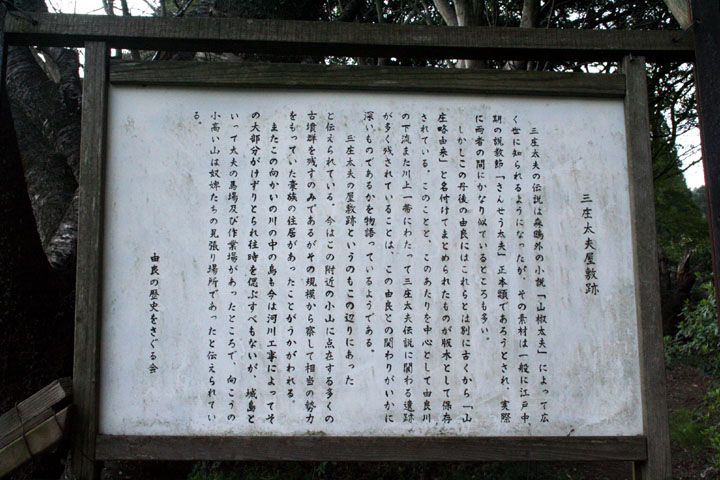 三庄太夫屋敷跡
三庄太夫の伝説は森鴎外の小説「山椒太夫」によって広
く世に知られるようになったが、その素材は一般に江戸中
期の説教節「さんせう太夫」正本類であろうとされ、実際
に両者の間にかなり似ているところも多い。
しかしこの丹後の由良にはこれらとは別に古くから「山
庄略由来」と名付けてまとめられたものが版木として保存
されている。このことや、このあたりを中心として由良川
の下流また川上一帯にわたって三庄太夫伝説に関わる遺跡
が多く残されていることは、この由良との関わりがいかに
深いものであるかを物語っているようである。
三庄太夫の屋敷跡というのもこの辺りにあった
と伝えられている。今はこの附近の小山に点在する多くの
古墳群を残すのみであるがその規模から察して相当の勢力
をもっていた豪族の住居があったことがうかがわれる。
またこの向かいの川の中の島も今は河川工事によってそ
の大部分がけずりとられ往時を偲ぶすべもないが、城島と
いって太夫の馬場及び作業場があったところで、向こうの
小高い山は奴婢たちの見張り場所であったと伝えられてい
る。
由良の歴史をさぐる会